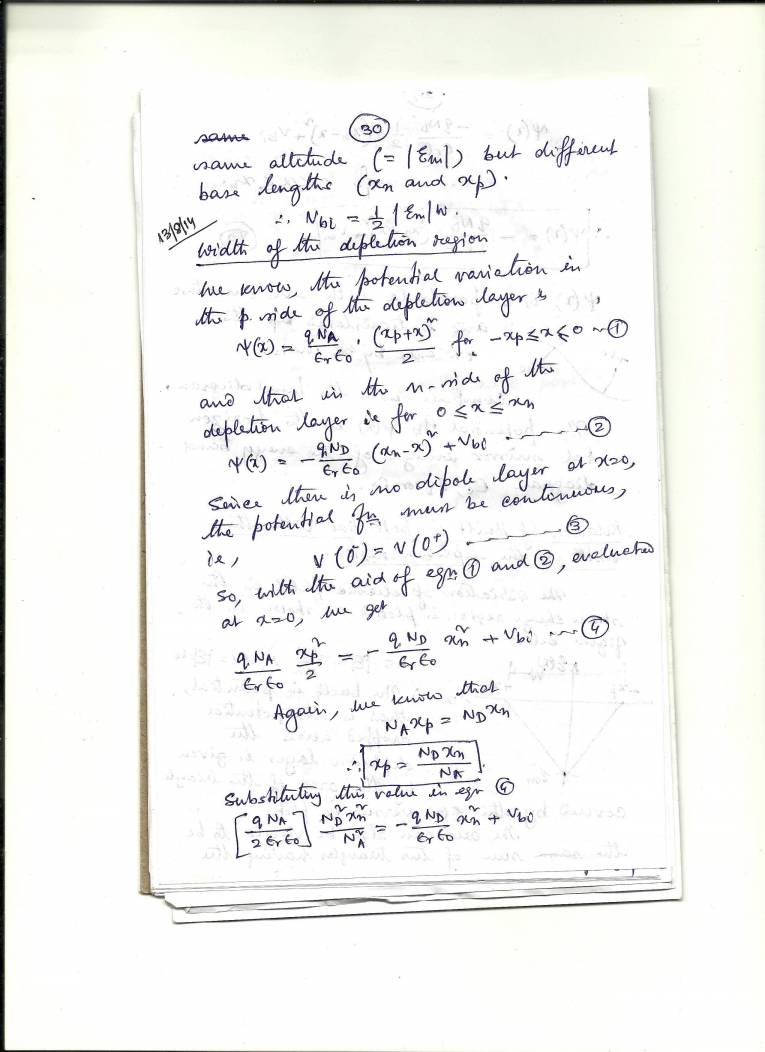 30
same
same altitude (= |Em|) but different
base lengths (xn and xp).
∴ Vbi = 1/2 |Em| W.
13/8/14
Width of the depletion region
We know, the potential variation in
the p side of the depletion layer is,
Ψ(x) = qNA/ϵrϵ0 · (xp+x)²/2 for -xp ≤ x ≤ 0 ~ ①
and that in the n-side of the
depletion layer is for 0 ≤ x ≤ xn
Ψ(x) = - qND/ϵrϵ0 (xn-x)² + Vbi ------ ②
Since there is no dipole layer at x=0,
the potential fn must be continuous,
ie, V(0⁻) = V(0⁺) ------ ③
So, with the aid of eqn. ① and ②, evaluated
at x=0, we get
qNA/ϵrϵ0 xp²/2 = - qND/ϵrϵ0 xn² + Vbi ~ ④
Again, we know that
NA xp = ND xn
∴ xp = ND xn/NA.
Substituting this value in eqn ④
[qNA/2ϵrϵ0] ND² xn²/NA² = - qND/ϵrϵ0 xn² + Vbi